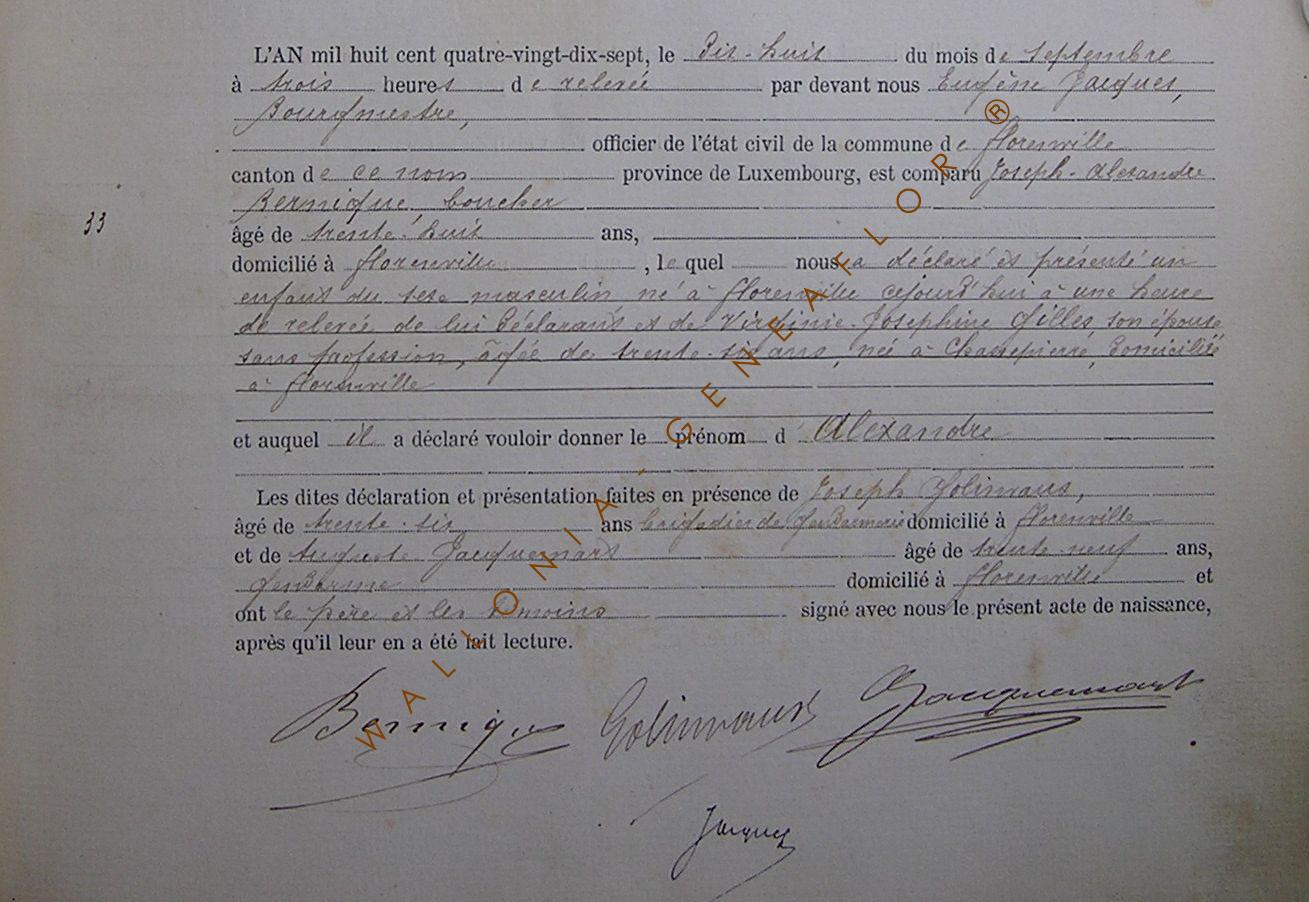 L'AN mil huit cent quatre-vingt-dix-sept, le Dix-huit du mois de septembre
à trois heures de relevée par devant nous Eugène Jacques,
Bourgmestre,
officier de l'état civil de la commune de Florenville
canton de ce nom province de Luxembourg, est comparu Joseph-Alexandre
Bernique, boucher
33
âgé de trente-huit ans,
domicilié à Florenville, lequel nous a déclaré et présenté un
enfant du sexe masculin né à Florenville cejourd'hui à une heure
de relevée de lui déclarant et de Virginie-Josephine Gilles, son épouse
sans profession, âgée de trente-six ans, née à Chassepierre, domiciliée
à Florenville
et auquel il a déclaré vouloir donner le prénom d'Alexandre
Les dites déclaration et présentation faites en présence de Joseph Golinvaux,
âgé de trente-six ans brigadier de gendarmerie domicilié à Florenville
et de Auguste Jacquemart âgé de trente-neuf ans,
gendarme domicilié à Florenville et
ont le père et les témoins signé avec nous le présent acte de naissance,
après qu'il leur en a été fait lecture.
Bernique Golinvaux Jacquemart
Jacques
WALLONIA-GENEAFLOR®